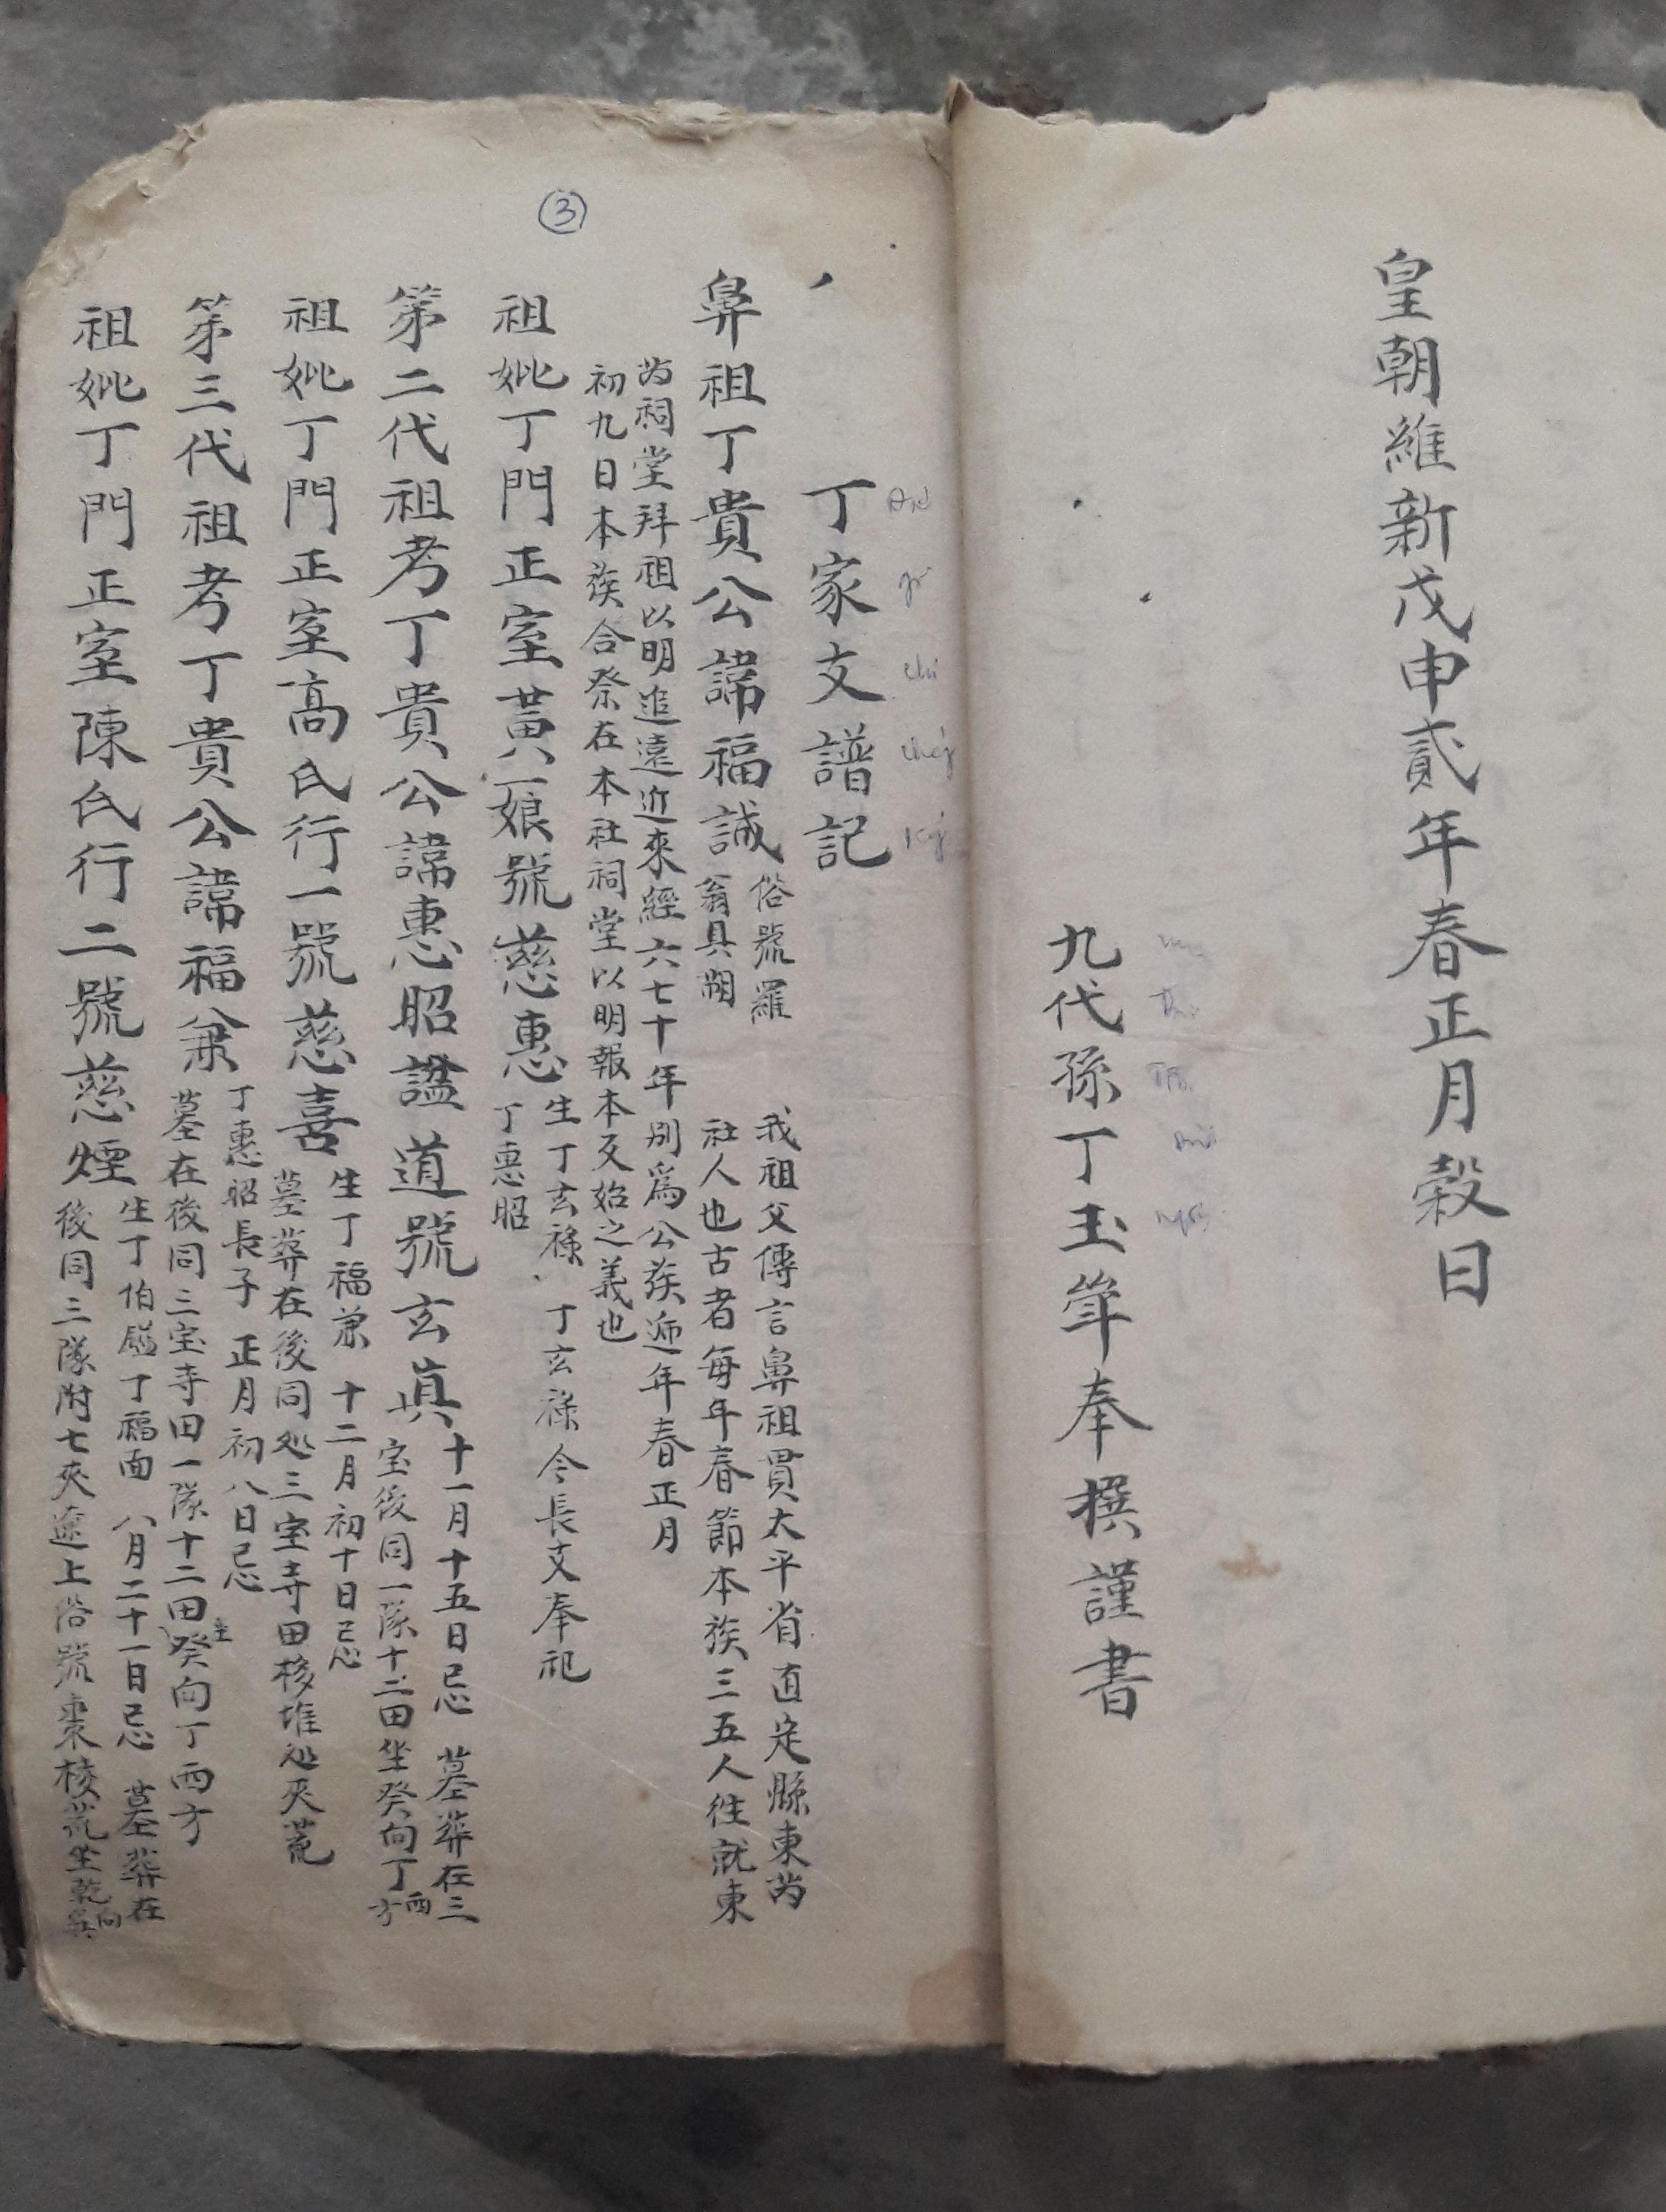 皇朝維新戊申貳年春正月穀日
九代孫丁玉奉撰謹書
③
丁家文譜記
鼻祖丁貴公諱福誠
俗號羅
翁具朔
我祖父傳言鼻祖貫太平省直定縣東芮
社人也古者每年春節本族三五人往就東
芮祠堂拜祖以明追遠近來經六七十年別爲公族逓年春正月
初九日本族合祭在本社祠堂以明報本反始之義也
祖妣丁門正室黃一娘號慈惠
生丁玄祿 丁玄祿今長支奉祀
丁惠昭
第二代祖考丁貴公諱惠昭謚道號玄眞
十一月十五日忌 墓葬在三
宝後同一隊十二田坐癸向丁西方
祖妣丁門正室高氏行一號慈喜
生丁福兼 十二月初十日忌
墓葬在後同処三宝寺田移堆処夾荒
第三代祖考丁貴公諱福兼
丁惠昭長子 正月初八日忌
墓在後同三宝寺田一隊十二田坐癸向丁西方
祖妣丁門正室陳氏行二號慈煙
生丁伯 丁福面 八月二十一日忌 墓葬在
後同三隊附七夾途上俗號棗棱荒坐乾向巽